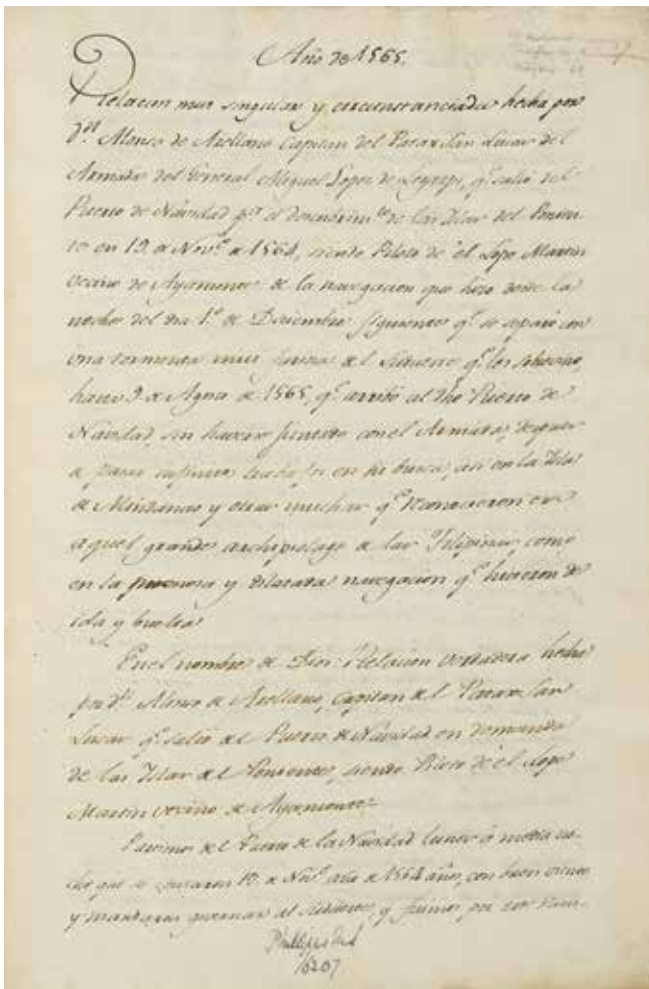 Año de 1565.
Relacion mui singular y circunstanciada hecha por
Dn. Alonso de Arellano Capitan del Patax San Lucas del
Armada del General Miguel Lopez de Legazpi, qe. salió del
Puerto de Navidad pa. el descubrimto. de las Islas del Ponien-
te en 19. de Nove. de 1564, siendo Piloto de el Lope Martin
vecino de Ayamonte de la navegacion que hizo desde la
noche del dia 1º. de Diciembre siguiente qe. se separó con
una tormenta mui del Sudueste qe. les sobrevino,
hasta 9. de Agosto de 1565, qe. arribó al dho Puerto de
Navidad, sin haverse con el Armada, despues
de pasar trabajos en su busca, asi en la Isla
de Mindanao y otras muchas qe. reconocieron en
aquel grande archipielago de las Filipinas, como
en la penosa y dilatada navegacion qe. hicieron de
ida y buelta.
En el nombre de Dios: Relacion verdadera hecha
por Dn. Alonso de Arellano, Capitan del Patax San
Lucas qe. salió del Puerto de Navidad en demanda
de las Islas del Poniente, siendo Piloto de el Lope
Martin vecino de Ayamonte.
Partimos del Puerto de la Navidad lunes á media no-
che que se contaron 19. de Nove. año de 1564 años, con buen
y mandaron governar al Sudueste, y fuimos por este rum-
Phillipps MS
16207